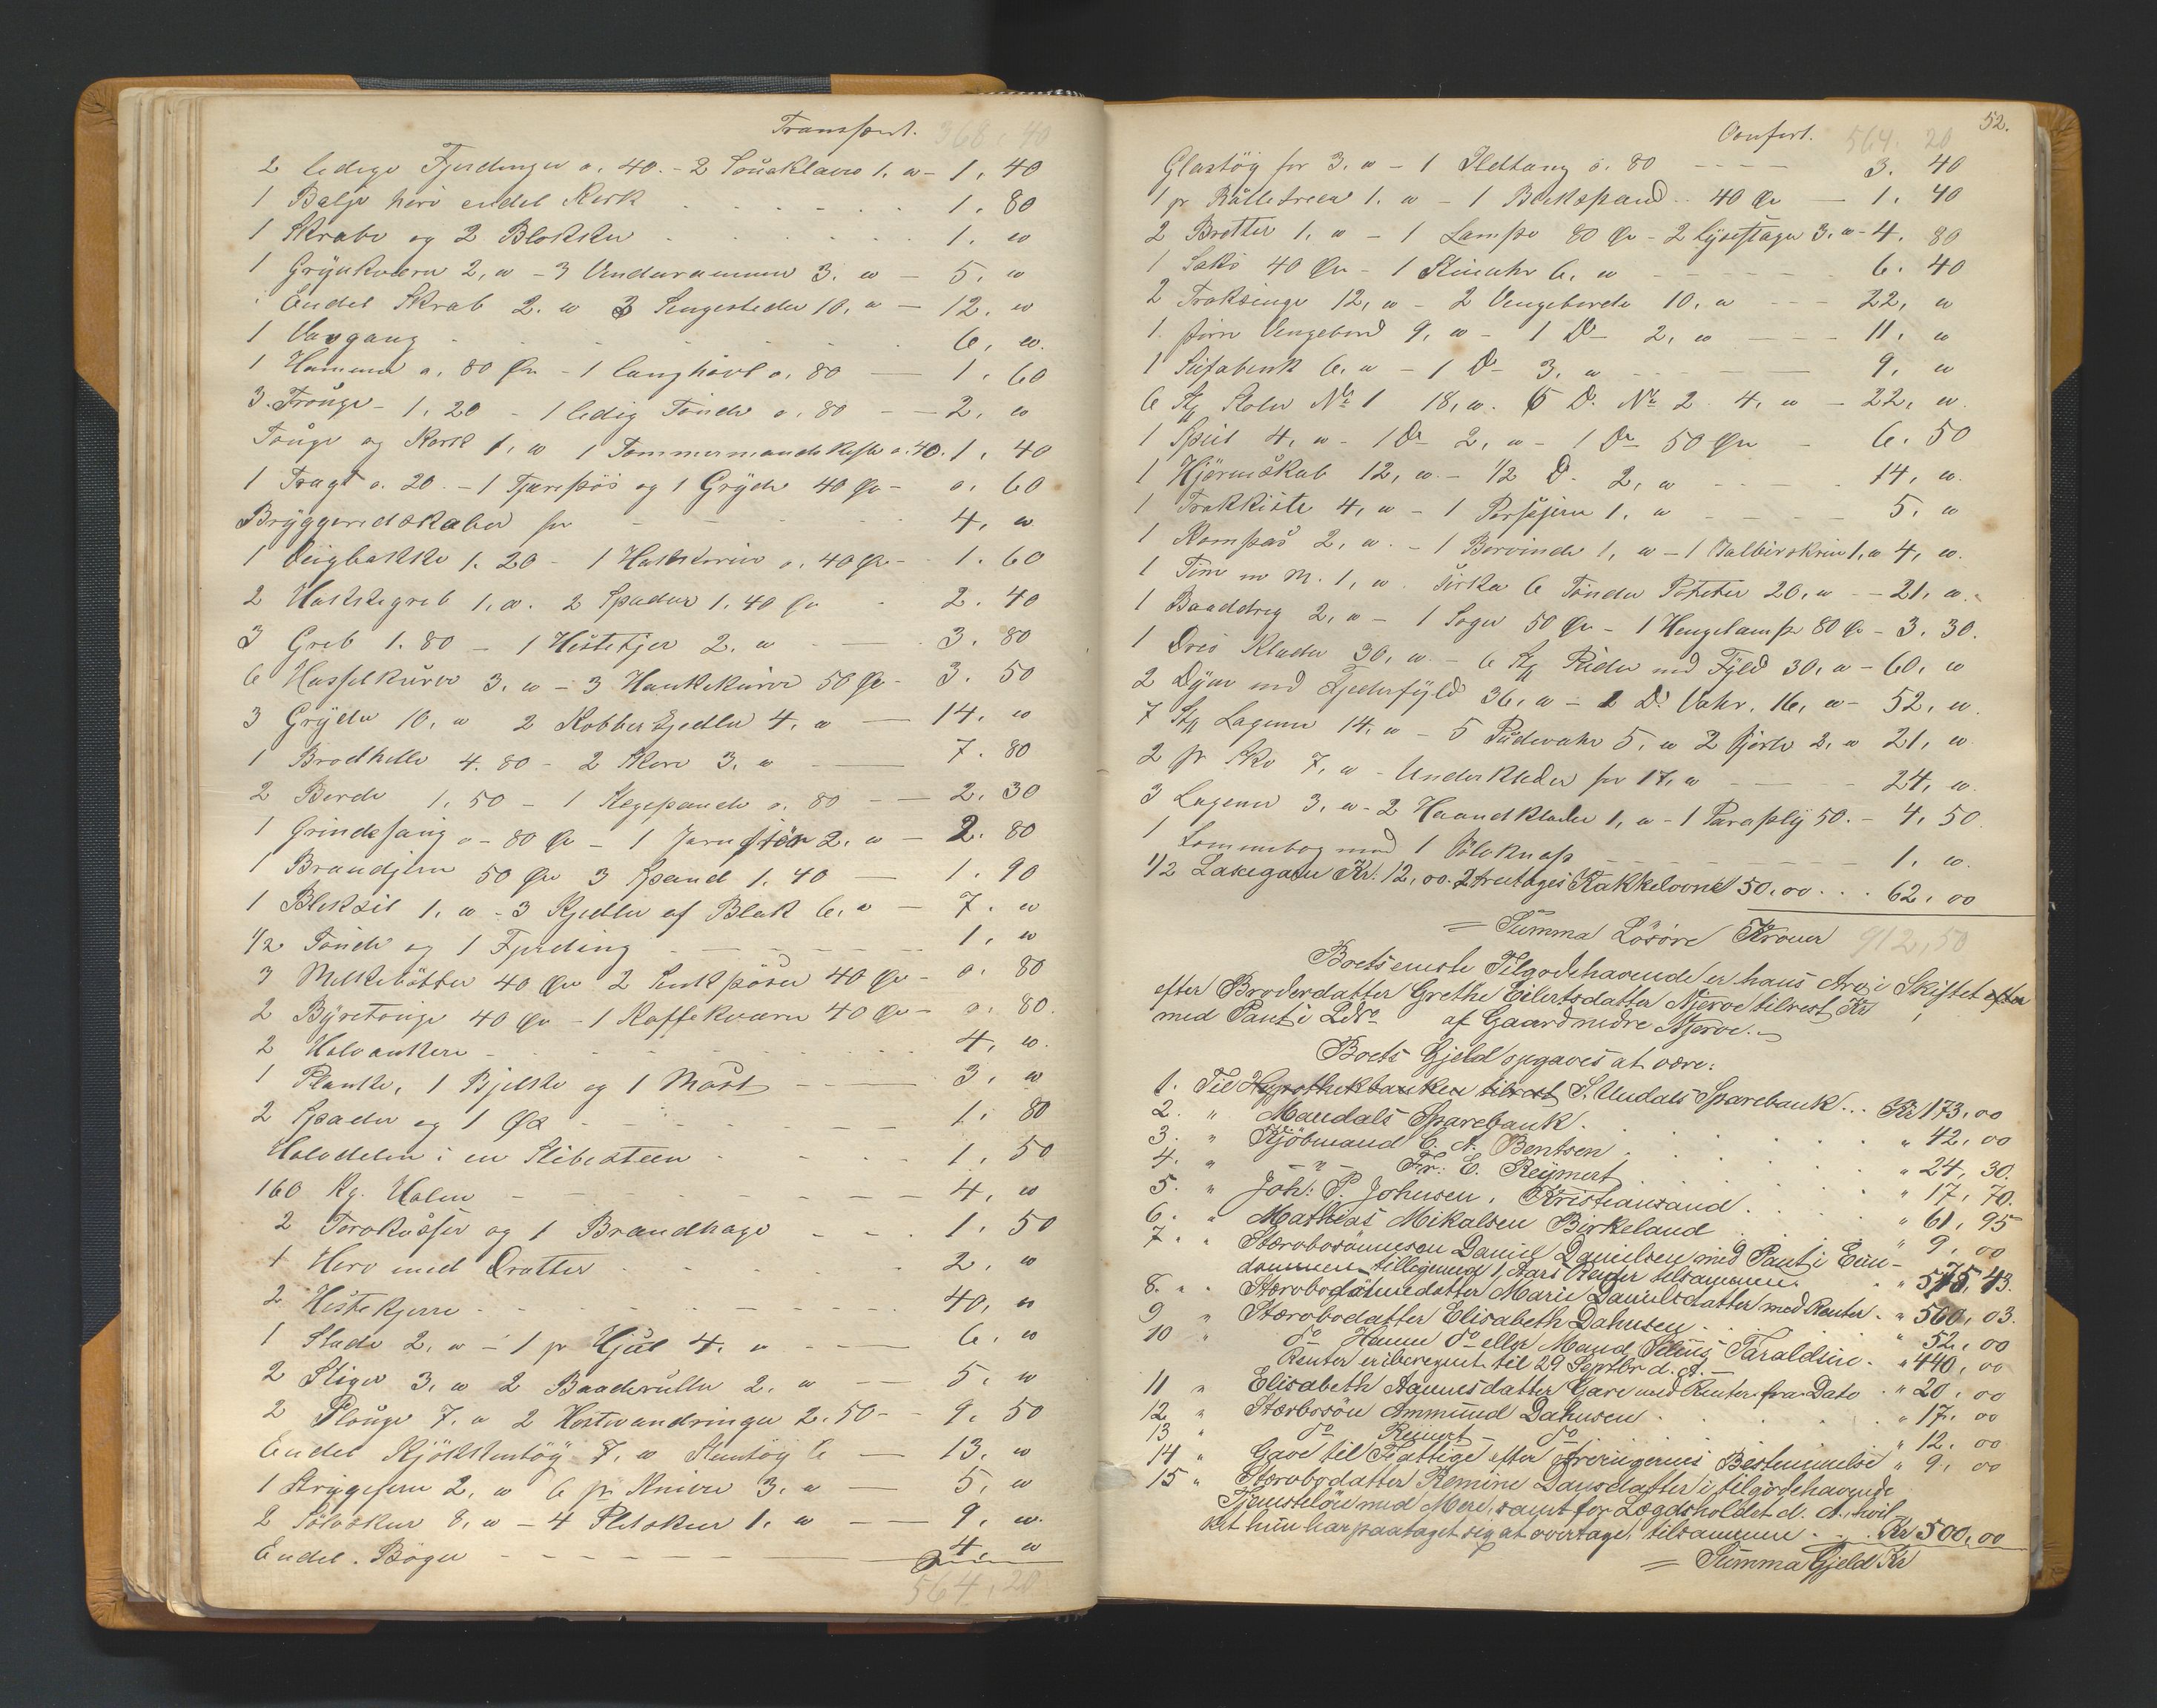 Transport. 368. 40
2 ledige Fjerdinger o. 40. - 2 Souaklaver 1. " - 1. 40
1 Balje hvri endel Kork 1. 80
1 Skrabe og 2 Blokker 1. "
1 Grynkværn 2, " - 3 Vinduramme 3. " - 5. "
Endel Skrab 2. " 3 Sengesteder 10. " - 12. "
1 Vævgang 6, "
1 Hammer o. 80 Øre - 1 langhøvl o. 80 - 1. 60
3 Trouge - 1. 20 - 1 ledig Tønde o. 80 - 2, "
Touge og Kork 1, " 1 Tømmermandskiste o. 40. 1, 40
1 Tragt o. 20. - 1 Tjærepøs og 1 Gryde 40 Øre - o. 60
Bryggeredskaber for - 4, "
1 Deigbakke 1. 20 - 1 o. 40 Øre - 1. 60
2 Hakkegreb 1. ". 2 Spader 1. 40 Øre - 2. 40
3 Greb 1. 80 - 1 2. " - 3. 80
6 Høsselkurve 3. " - 3 Hankekurve 50 Øre - 3. 50
3 Gryder 10, " 2 Kobberkjedler 4. " - 14. "
1 Brødhelle 4. 80 - 2 3. " - 7. 80
2 Borde 1. 50 - 1 Stegepande o. 80 - 2. 30
1 Grindesaug o - 80 Øre - 1 Jarnstør 2. " - 2. 80
1 Brandjern 50 Øre 3 Spand 1. 40 - 1. 90
1 1. " - 3 Kjedler af Blek 6. " - 7. "
1/2 Tønde og 1 Fjerding 1. "
3 Melkebøtter 40 Øre 2 Senkpøser 40 Øre - o. 80
2 40 Øre - 1 Kaffekværn 40 Øre - o. 80.
2 Halvankere 4, "
1 Planke, 1 Bjelke og 1 Mast 3. "
2 Spader og 1 Øx 1. 80
Halvdelen i en Slibesteen 1, 50
160 Kg. Halm 4, "
2 og 1 Brandhage 1. 50
1 Herv med Dratter 2. "
2 Hestekjerre 40, "
1 Slæde 2. " - 1 pr Hjul 4. " 6. "
2 Stiger 3. " 2 Baaderuller 2. " 5. "
2 Plouge 7. " 2 2. 50 - 9. 50
Endel Kjøkkentøy 7. " Stentøy 6 - 13. "
1 Strygejern 2. " 6 pr Knive 3. " - 5, "
2 Sølvskeer 8. " - 4 Pletskeer 1. " - 9. "
Endel Bøger 4, "
564, 20
52.
Confert. 564. 20
Glastøy for 3. " - 1 Ildtang o. 80 3. 40
1 pr Rulletræer 1. " - 1 Blekspand 40 Øre - 1. 40
2 Bretter 1. " - 1 Lampe 80 Øre - 2 Lysestager 3. " - 4. 80
1 40 Øre - 1 Stueuhr 6. " 6. 40
2 12, " - 2 Vengeborde 10. " 22, "
1. Vengebord 9. " - 1 Do 2, " 11. "
1 Sufabenk 6. " - 1 Do 3. " 9. "
6 Stk Stoler No 1 18, ". 6 Do No 2 4, " - 22, "
1 Speil 4. " - 1 Do 2, " - 1 Do 50 Øre - 6. 50
1 Hjørneskab 12, " - 1/2 Do 2, " 14, "
1 Trækkiste 4, " - 1 1. " 5. "
1 Kompas 2, ". - 1 Borvinde 1, " - 1 Balbirskrin 1," 4, "
1 m. 1, ". Sirka 6 Tønder Poteter 20, " - 21, "
1 Baaddreg 2, " - 1 50 Øre - 1 Hengelampe 80 Øre - 3. 30.
1 Klæder 30, " - 6 Stk Puder med Fyld 30, " - 60, "
2 Dyne med Fjederfyld 36, " - 2 Do Vahr. 16, " - 52, "
7 Stk Lagener 14, " - 5 Pudevahr 5, " 2 2, " 21, "
2 pr Sko 7, " - Underklæder for 17, " 24, "
3 Lagener 3, " - 2 Haandklæder 1, " - 1 Paraply 50. - 4, 50
1 Lommebog med 1 Sølvknap 1. "
1/2 Laxegarn Kr. 12, 00. 2 treetages Kakkelovne 50. 00 . . . 62, 00
= Summa Løsøre Kroner 912, 50
Boets eneste Tilgodehavende er hans Arv i Skiftet efter
efter Broderdatter Grethe Eilertsdatter Njerve tilrest Kr
med Pant i LNo af Gaard nedre Njerve. -
Boets Gjeld opgaves at være:
1. Til Hypothekbanken tilrest S. Undals Sparebank ... Kr 173, 00
2. " Mandals Sparebank . " 42, 00
3. " Kjøbmand C. A. Bentsen . " 24, 30.
4. " - " - Fr. E. Reymert . " 17, 70.
5. " Joh: P. Johnsen, Kristiansand . " 61, 95
6. " Mathias Mikalsen Birkeland . " 9, 00
7. " Stærvbosønnesøn Daniel Danielsen med Pant i Eien-
dommen tillegemed 1 Aars Renter tilsammen. " 575, 43.
8. " Stærvbosønnedatter Marie Danielsdatter med Renter . " 560, 03.
9 " Stærvbodatter Elisabeth Dahnsen . " 52, 00
10 " do Hanne do eller Mand Taraldsen . " 440, 00
Renter er iberegnet til 29 Septbr d. A. -
11 " Elisabeth Aannesdatter Gare med Renter fra Dato . " 20, 00
12. " Stærbosøn Ammund Dahnsen . " 17. 00
13 " do Reinert do . " 12. 00
14 " Gave til Fattige efter Arvingernes Bestemmelse " 9, 00
15 " Stærvbodatter Remine Dansdatter i tilgodehavende
Tjenesteløn med Mere, samt for Lægdsholdet d. A., hvil
ket hun har paataget sig at overtage, tilsammen . . . Kr 500, 00
= Summa Gjeld Kr